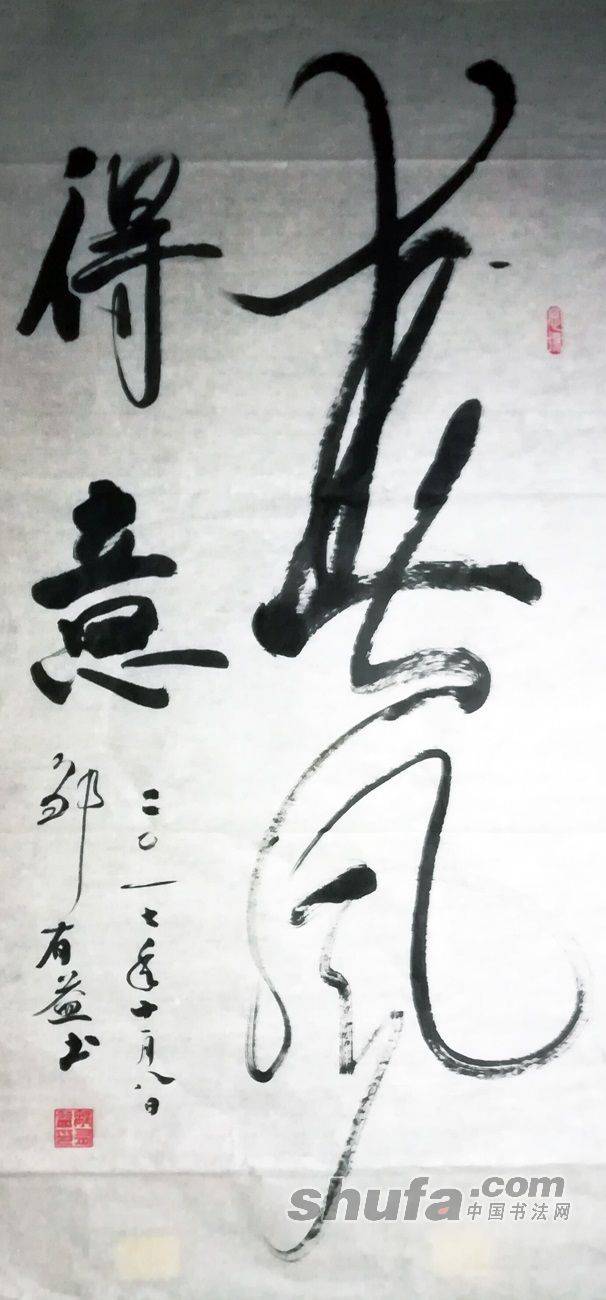 春风
得意
二〇一七年十一月八日
邹有益书
shufa.com
中国书法网